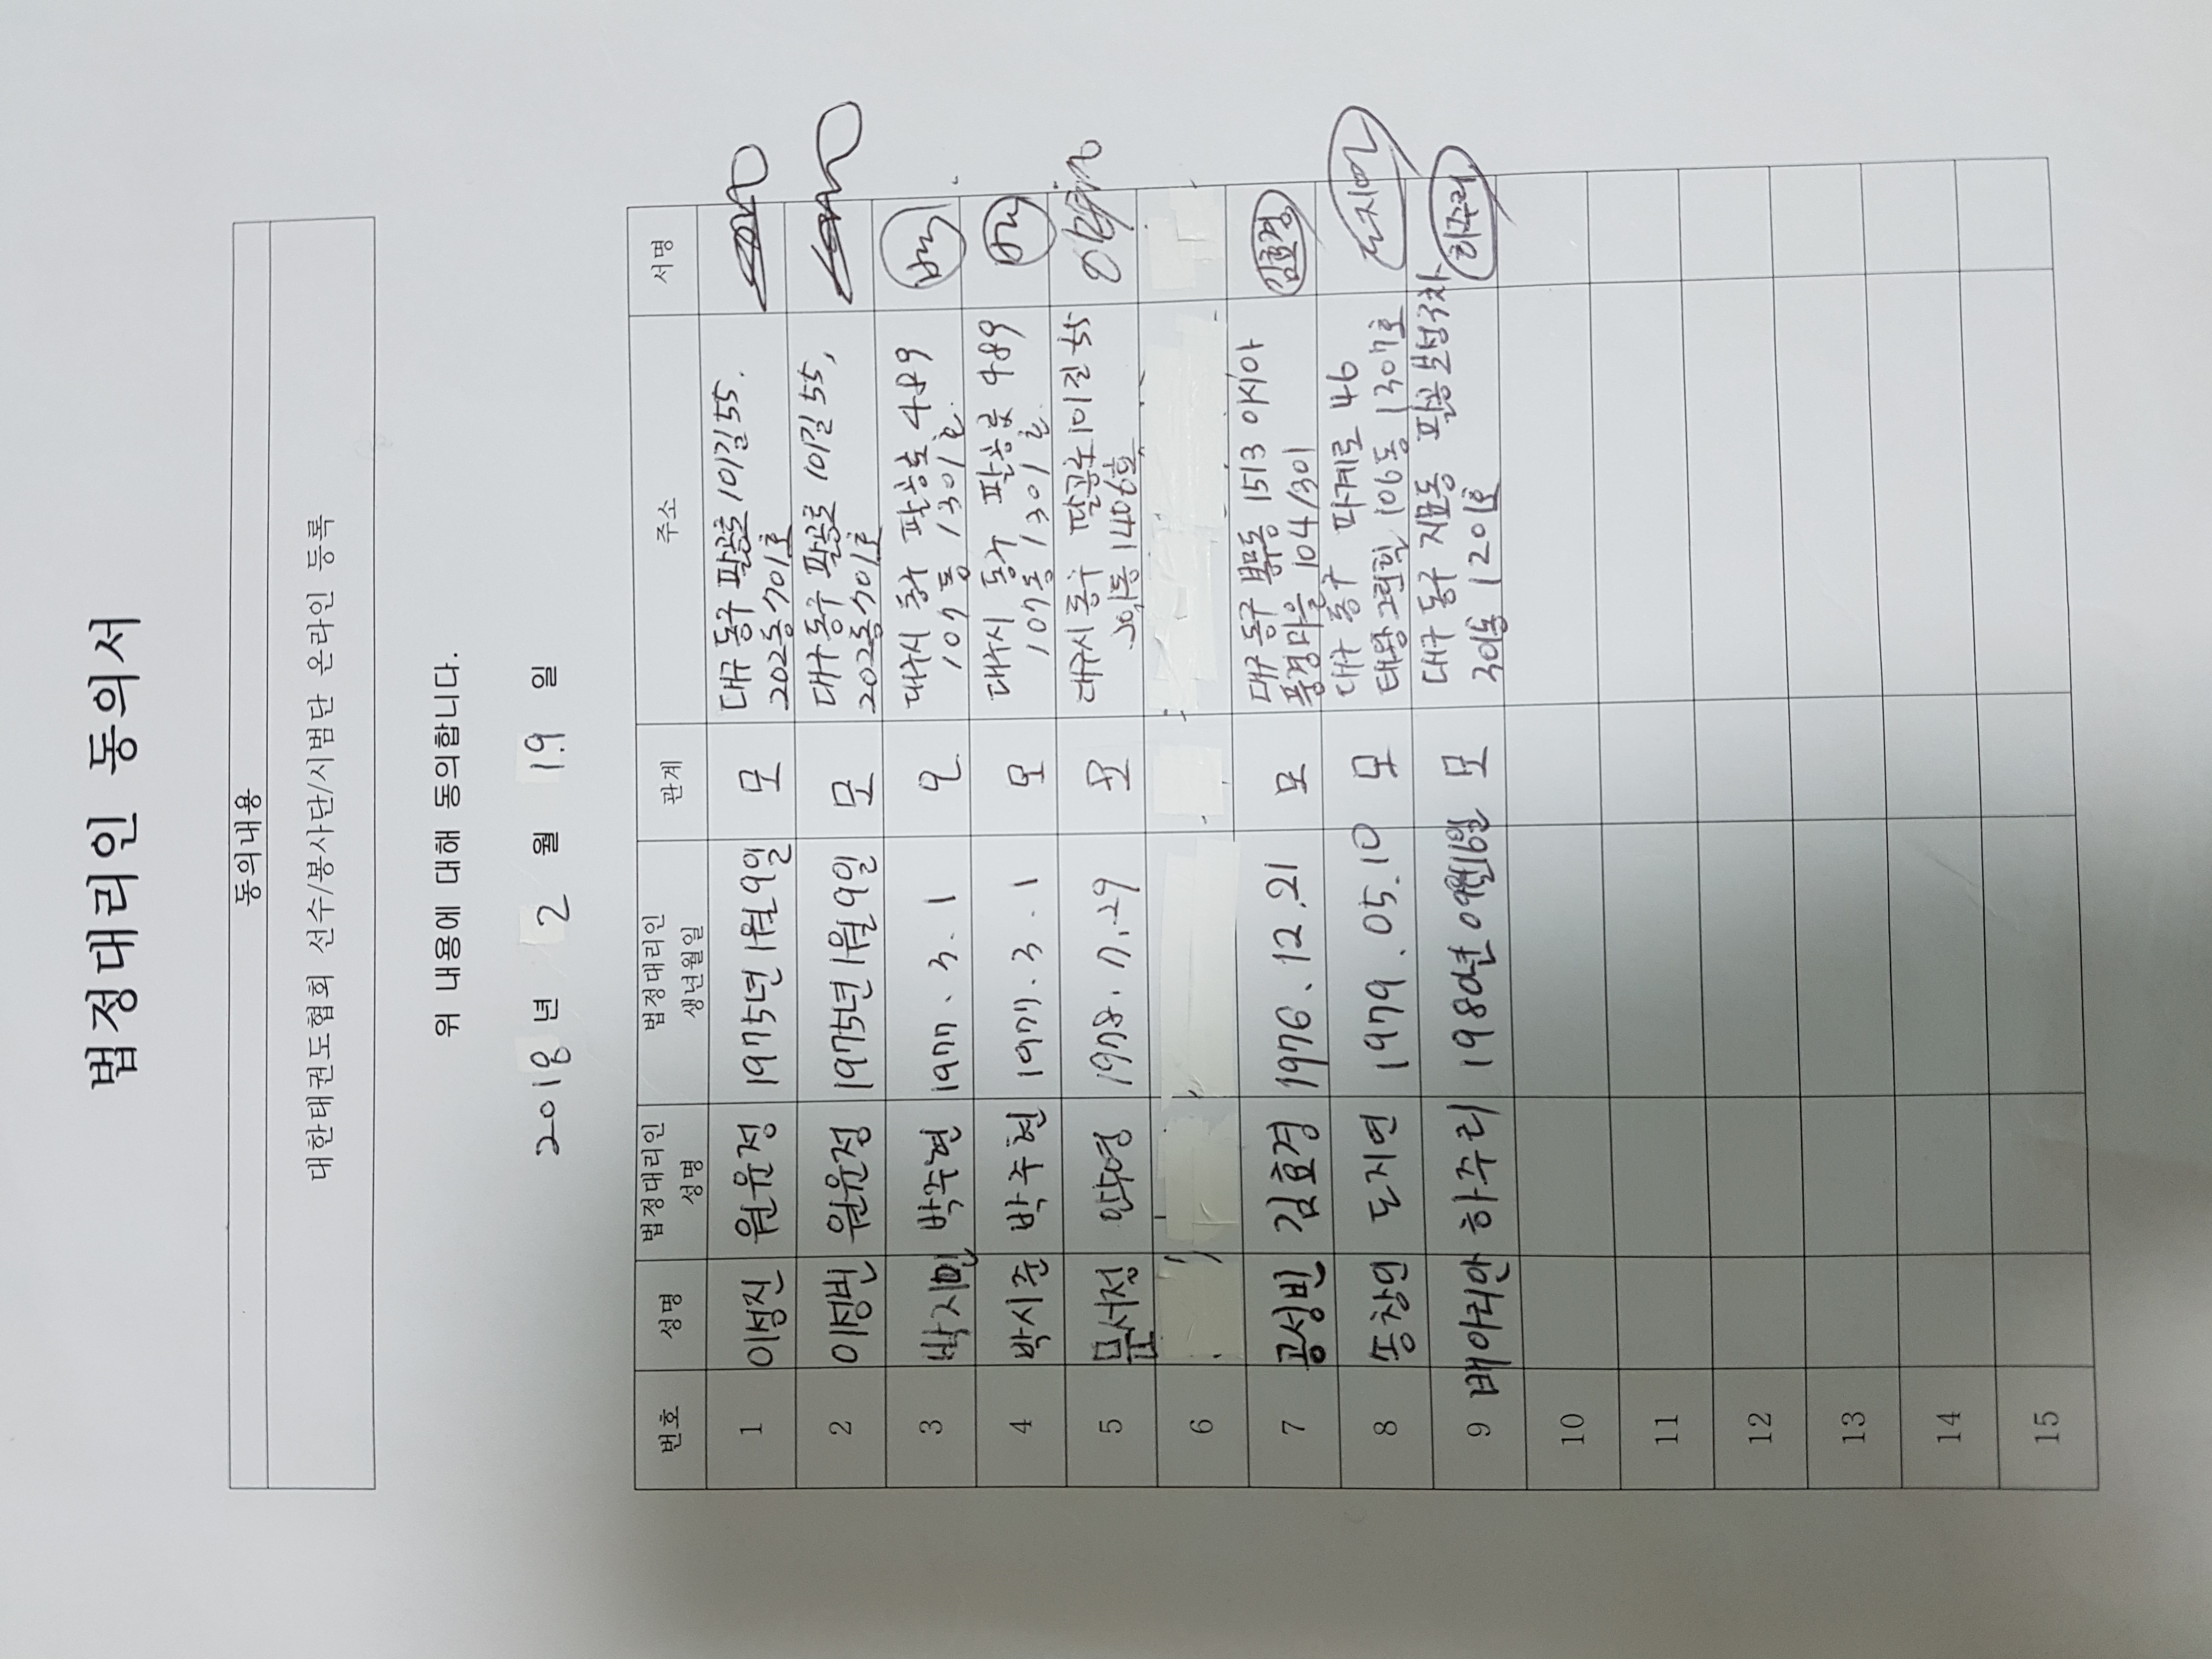 법정대리인 동의서
동의내용
대한태권도협회 선수/봉사단/시범단 온라인 등록
위 내용에 대해 동의합니다.
2018 년 2 월 19 일
번호 성명 법정대리인 성명 법정대리인 생년월일 관계 주소 서명
1 이성진 원윤정 1975년 1월 9일 모 대구 동구 팔공로 101길 55.
202동 701호
2 이정빈 원윤정 1975년 1월 9일 모 대구 동구 팔공로 101길 55,
202동 701호
3 박지민 박주현 1977. 3. 1 모 대구시 동구 팔공로 489
107동 1301호.
4 박시준 박주현 1977. 3. 1 모 대구시 동구 팔공로 489
107동 1301호.
5 문서정 1978. 7. 29 모 대구시 동구 팔공로 101길 55
201동 1406호
6
7 공성빈 김효정 1976. 12. 21 모 대구 동구 봉무동 1513 아시아
풍경마을 104/301 김효정
8 송창연 도지연 1979. 05. 10 모 대구 동구 파계로 46
태왕그린힐 106동 1307호 도지연
9 배아리안 하주리 1980년 09월 16일 모 대구 동구 지묘동 팔공보성3차
301동 1201호 하주리
10
11
12
13
14
15